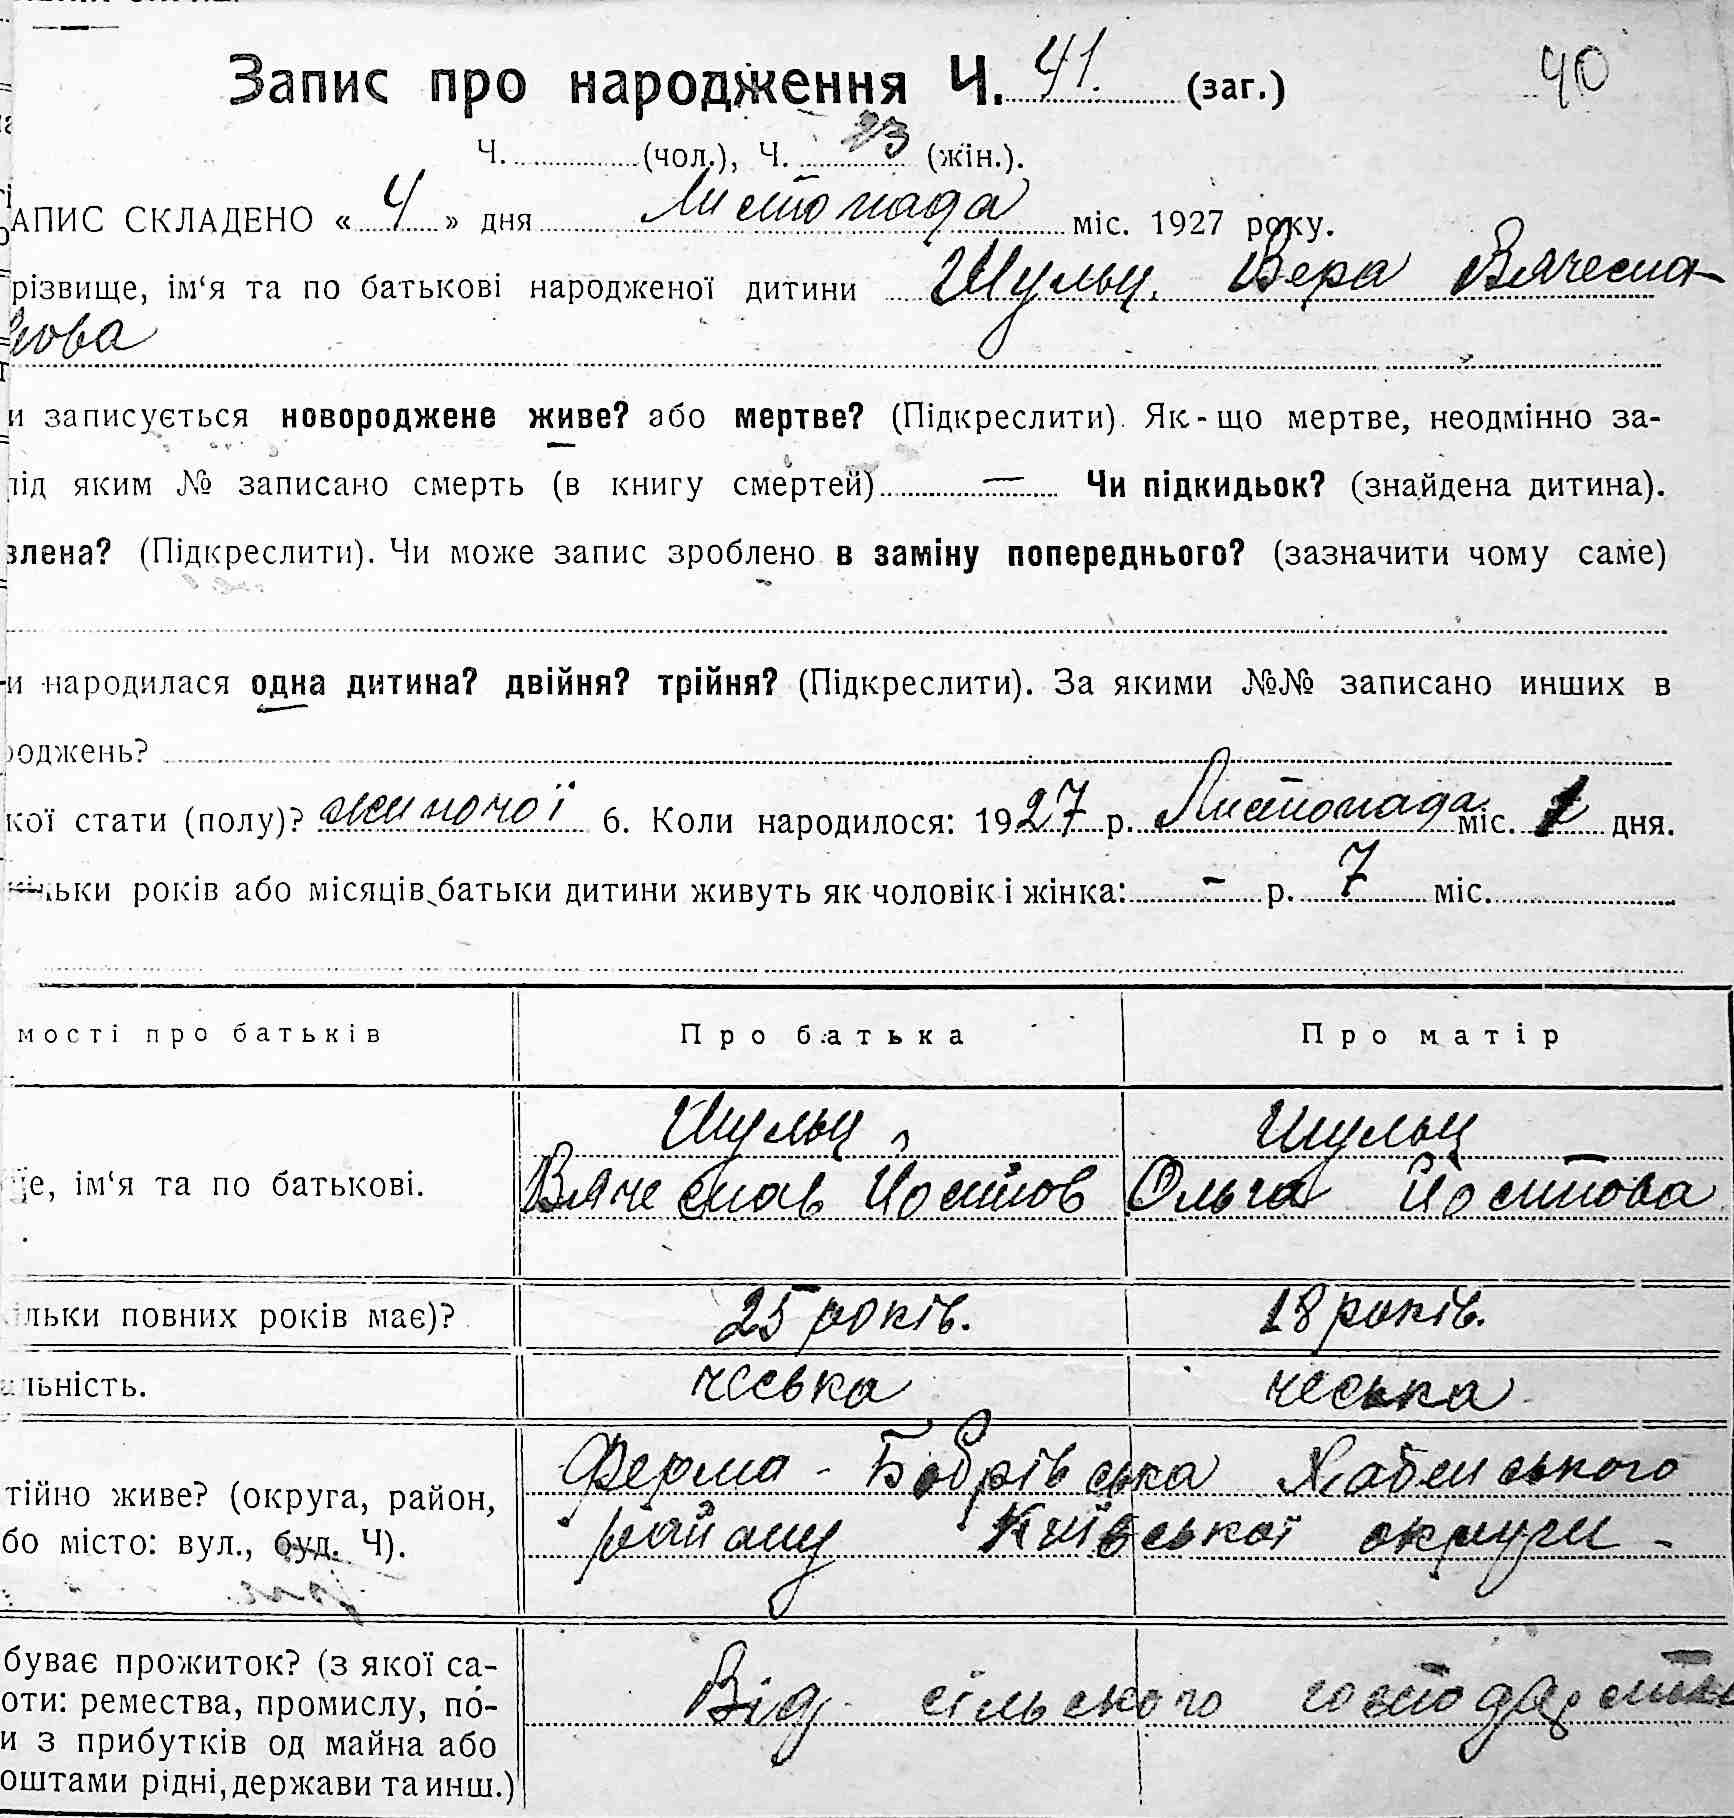 Запис про народження Ч. 41. (заг.) 40
Ч. (чол.), Ч. 23 (жін.).
АПИС СКЛАДЕНО « 4 » дня Листопада міс. 1927 року.
різвище, ім‘я та по батькові народженої дитини Шульц Вера Вячесла-
вова
и записується новороджене живе? або мертве? (Підкреслити). Як-що мертве, неодмінно за-
під яким № записано смерть (в книгу смертей) — Чи підкидьок? (знайдена дитина).
влена? (Підкреслити). Чи може запис зроблено в заміну попереднього? (зазначити чому саме)
и народилася одна дитина? двійня? трійня? (Підкреслити). За якими №№ записано инших в
роджень?
кої стати (полу)? жиночої 6. Коли народилося: 1927 р. Листопада міс. 1 дня.
кільки років або місяців батьки дитини живуть як чоловік і жінка: - р. 7 міс.
мості про батьків Про батька Про матір
Шульц Шульц
це, ім‘я та по батькові. Вячеслав Йосипов Ольга Йосипова
ільки повних років має)? 25 років. 18 років.
альність. чеська чеська
Ферма - Бобрівська Хабенського
тійно живе? (округа, район,
бо місто: вул., буд. Ч). району Київської округи -
буває прожиток? (з якої са-
оти: ремества, промислу, по- Від сільського господарства
и з прибутків од майна або
оштами рідні, держави та инш.)